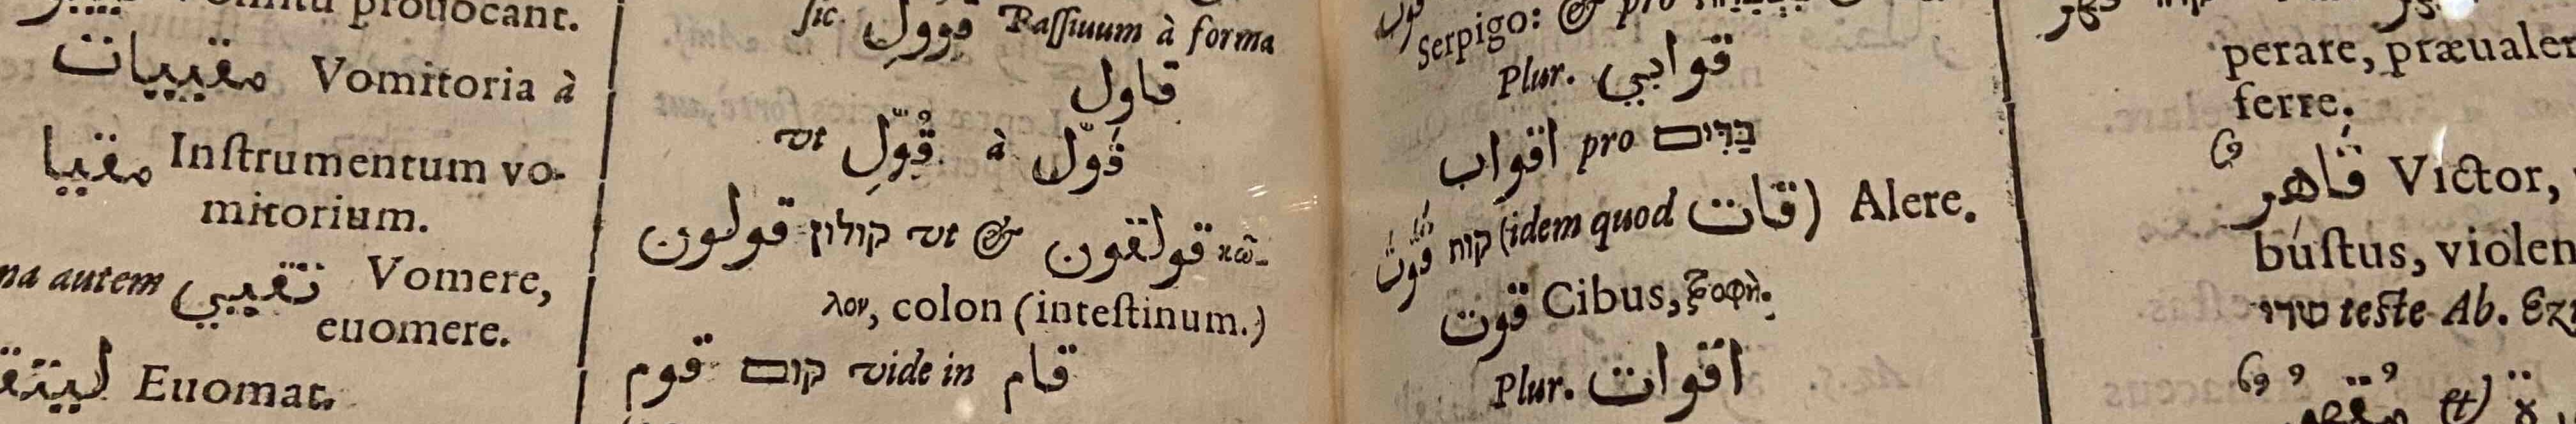 vomitu prouocant.
مقيييات Vomitoria à
مقييا Inſtrumentum vo-
mitorium.
na autem تقيي Vomere,
euomere.
Euomat.
ſic قوول Paſſiuum à forma
قاول
vt قوّل à قوّل
قولون קולון vt & قولقون κῶ-
λον, colon (inteſtinum.)
قوم קום vide in قام
Serpigo: & pro
Plur. قوابي
اقواب pro בַּדִּים
قوت קות (idem quod قات) Alere.
قوت Cibus, τροφὴ.
Plur. اقوات
perare, præualer
ferre.
قاهر Victor,
buſtus, violen
שדי teſte Ab. Ez
et)